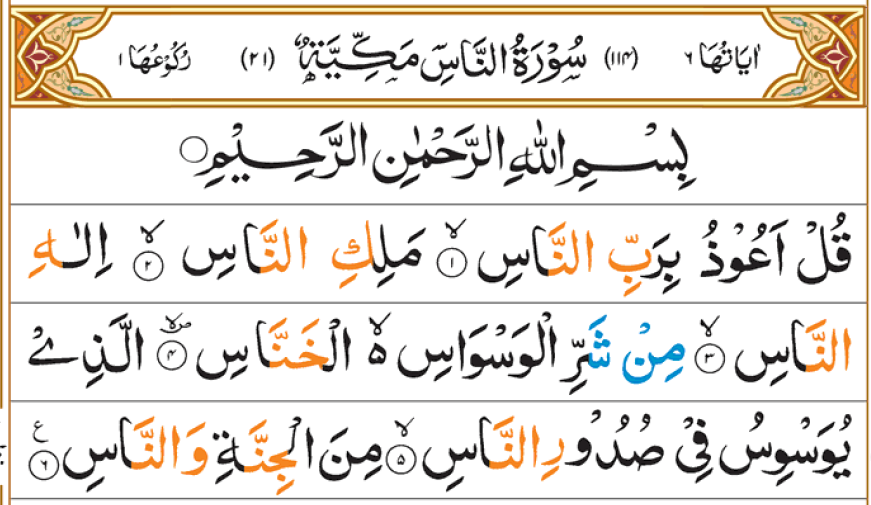 اٰيَاتُهَا ٦ (١١٤) سُوْرَةُ النَّاسِ مَكِّيَّةٌ (٢١) رُكُوْعُهَا ١
بِسْمِ اللّٰهِ الرَّحْمٰنِ الرَّحِيْمِ
قُلْ اَعُوْذُ بِرَبِّ النَّاسِ ۙ ١ مَلِكِ النَّاسِ ۙ ٢ اِلٰهِ
النَّاسِ ۙ ٣ مِنْ شَرِّ الْوَسْوَاسِ ۙ۬ الْخَنَّاسِ ۪ۙ ٤ الَّذِيْ
يُوَسْوِسُ فِيْ صُدُوْرِ النَّاسِ ۙ ٥ مِنَ الْجِنَّةِ وَالنَّاسِ ٦ ع